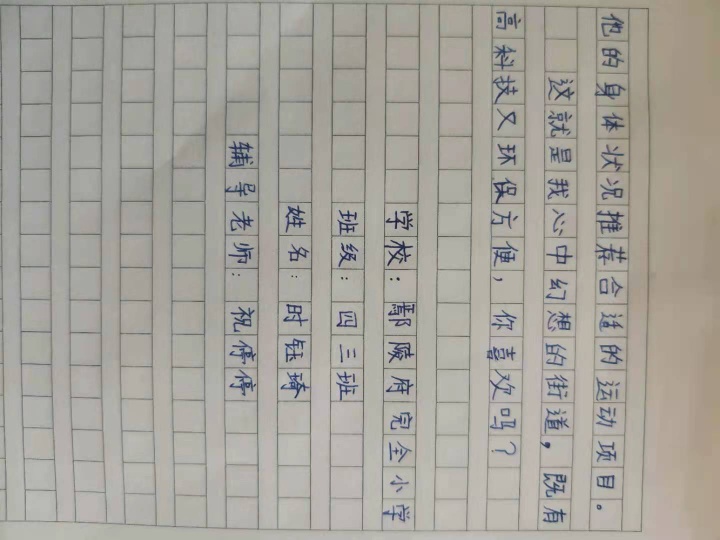 他的身体状况推荐合适的运动项目。
这就是我心中幻想的街道，既有
高科技又环保方便，你喜欢吗？
学校：鄢陵府完全小学
班级：四三班
姓名：时钰琦
辅导老师：祝停停